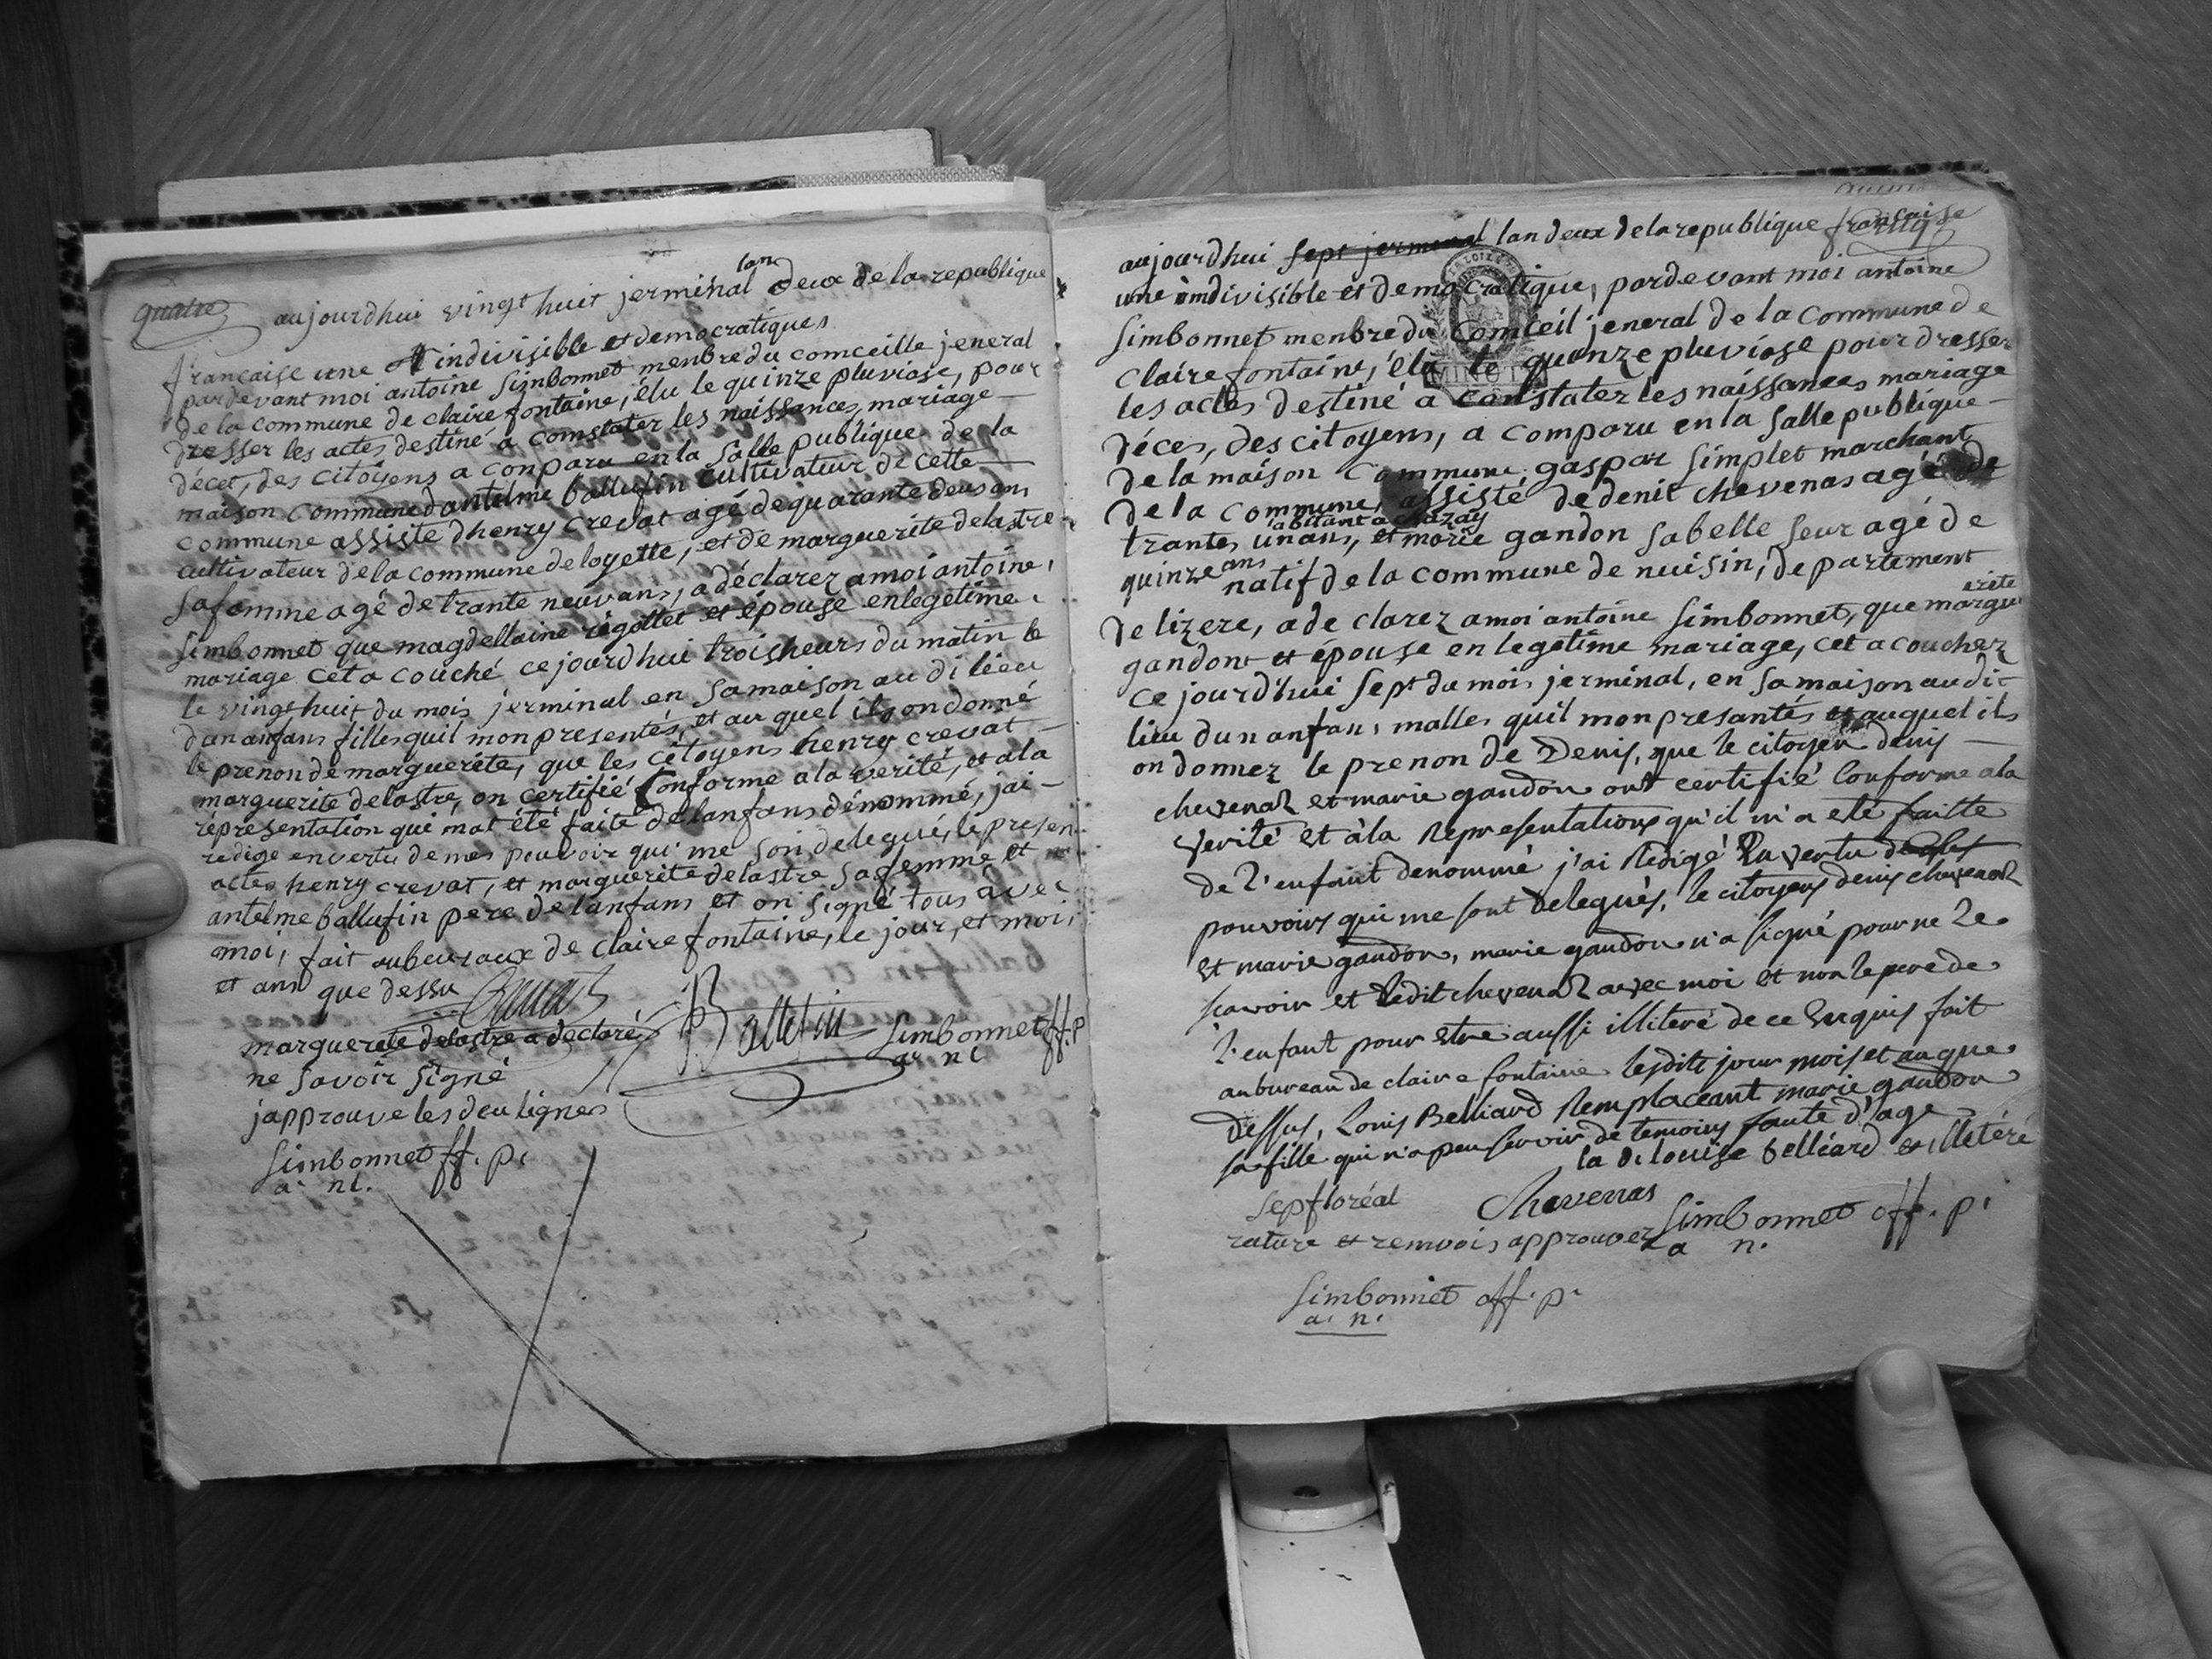 quatre
aujourdhui vingt huit jerminal lan deux de la republique
francaise une et indivisible et democratiques
pardevant moi antoine simbonnet menbre du comceille jeneral
de la commune de claire fontaine, élu le quinze pluviose, pour
dresser les actes destiné a comstater les naissances, mariage
décet, des citoyens a conparu en la salle publique de la
maison commune dantelme ballufin cultivateur de cette
commune assiste dhenry crevat agé de quarante deus ans
cultivateur dela commune deloyette, et de marguerite delastre
safamme agé de trante neuvans, a déclarez amoi antoine,
simbonnet que magdellaine rigottet et épouse enlegetime
mariage cet a couché cejourdhui trois heurs du matin le
le vingt huit du mois jerminal en samaison audi lieu
dun anfans filles quil mon presentés, et au quel ils on donné
le prenon de marguerite, que les citoyens henry crevat
marguerite delastre, on certifié conforme ala verité, et ala
répresentation qui mat été faite de lanfans dénommé, jai
redige envertu demes pouvoir qui me son delegué, le presen
actes henry crevat, et marguerite delastre safemme et
antelme ballufin pere de lanfans et on signé tous avec
moi, fait aubeuraux de claire fontaine, le jour, et moi,
et ans que dessu
marguerete delastre a declaré
ne savoir signé
Balletin
simbonnet off. p
japprouve les deu lignes
simbonnet off. p.
aujourdhui sept jerminal lan deux de la republique française
une indivisible et democratique, pardevant moi antoine
simbonnet menbre du comceil jeneral de la commune de
claire fontaine, élu le quinze pluviose pour dresser
les actes destiné a constater les naissances mariage
déces, des citoyens, a comparu en la salle publique
de la maison commune gaspar simplet marchant
de la commune, assisté de denit chevenas agé de
abitant a chazay
trantes unans, et marie gandon sabelle seur agé de
quinze ans natif de la commune de nuisin, departement
de lizere, a de clarez amoi antoine simbonnet, que marguerite
gandont et épouse en legetime mariage, cet a couchez
ce jourd'hui sept du mois jerminal, en samaison audit
lieu dun anfans malles quil mon presantés et auquel ils
on donnez le prenon de Denis, que le citoyen denis
chevenas et marie gaudon ont certifié Conforme ala
verité et à la Representations qu'il m'a eté faitte
de l'enfant denommé j'ai Redigé En vertu des
pouvoirs qui me sont delegués, le citoyens denis chevenas
et marie gaudon, marie gaudon n'a signé pour ne le
scavoir et ledit chevenas avec moi et non le pere de
l'enfant pour etre aussi illiteré de ce Enquis fait
au bureau de claire fontaine lesdits jour mois et an que
dessus, Louis Belliard Remplaceant marie gaudon
sa fille qui n'a peu servoir de temoins faute d'age
la d. louise belléard et illetéré
sepfloréal
Chevenas
simbonnet off. p.
a n.
rature et remvois approuvez
simbonnet off. p.
a. n.